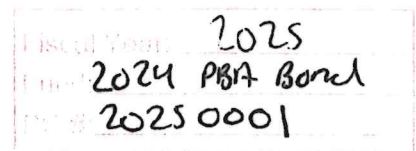 Fiscal Year: 2025
Fund: 2024 PBA Bond
20250001